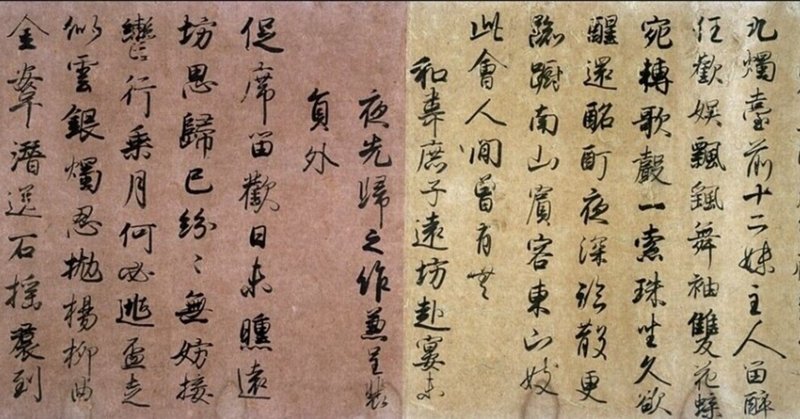 九燭臺前十二姝主人留醉
任歡娛飄颻舞袖雙飛蝶
宛轉歌聲一索珠坐久欲
醒還酩酊夜深臨散更
踟躕南山賓客東山妓
此會人間曾有无
和韋庶子遠坊赴宴未
夜先歸之作兼呈裴
員外
促席留歡日未曛遠
坊思歸已紛々無妨按
轡行乘月何必逃盃走
似雲銀燭忍拋楊柳曲
金鞍潛送石榴裙到